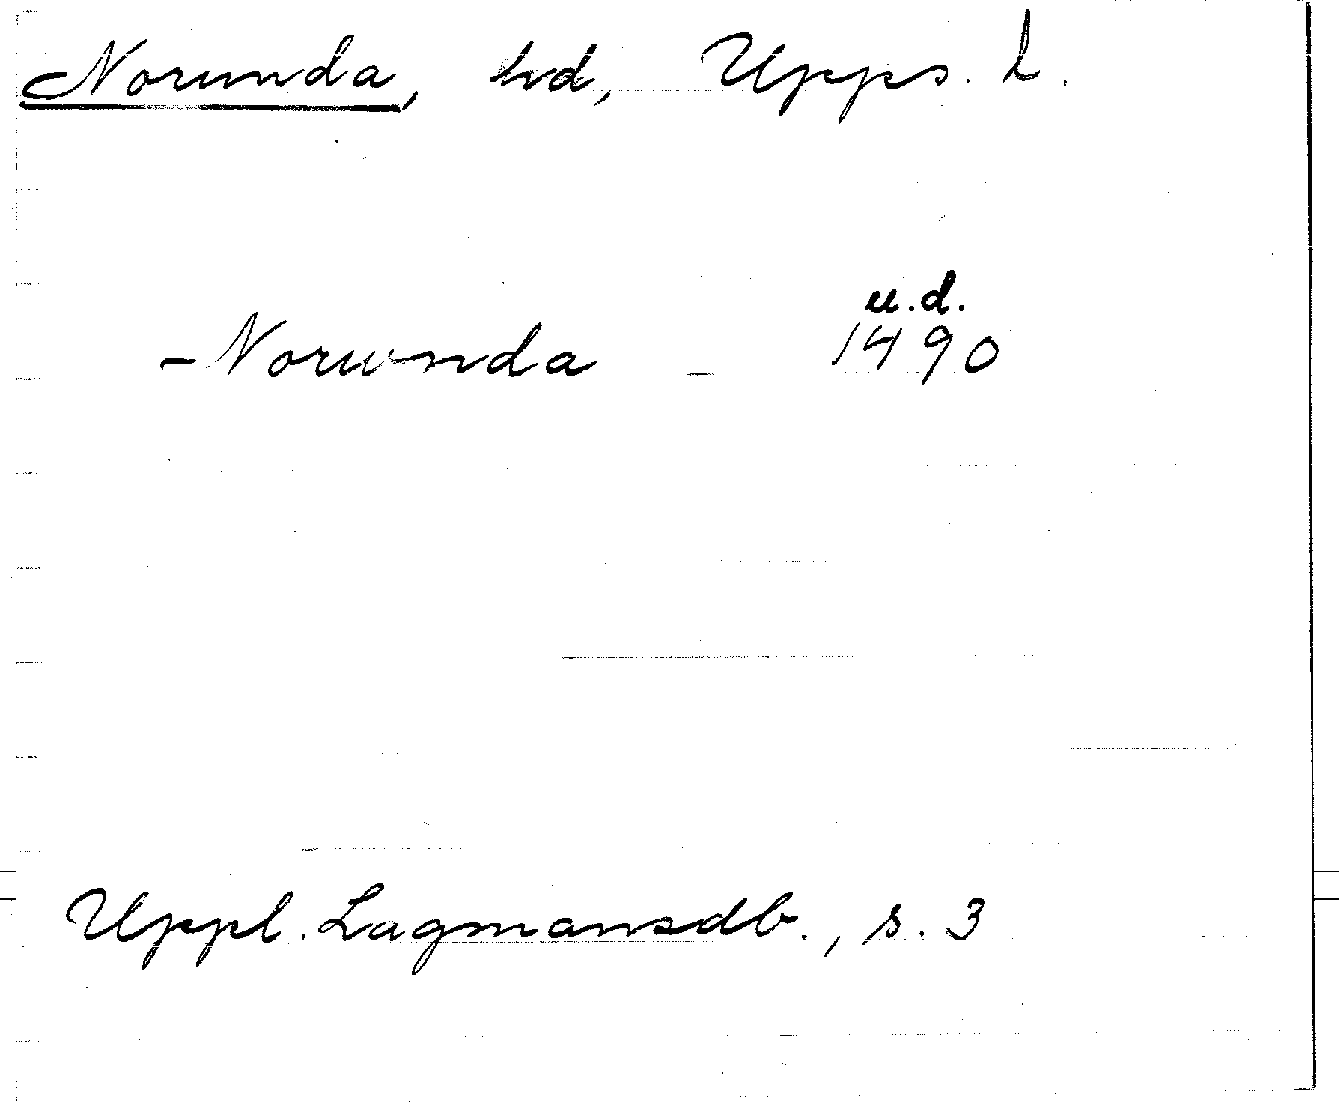 Norunda, hd, Upps. L.
u.d.
- Norunda - 1490
Uppl. Lagmansdb., s. 3